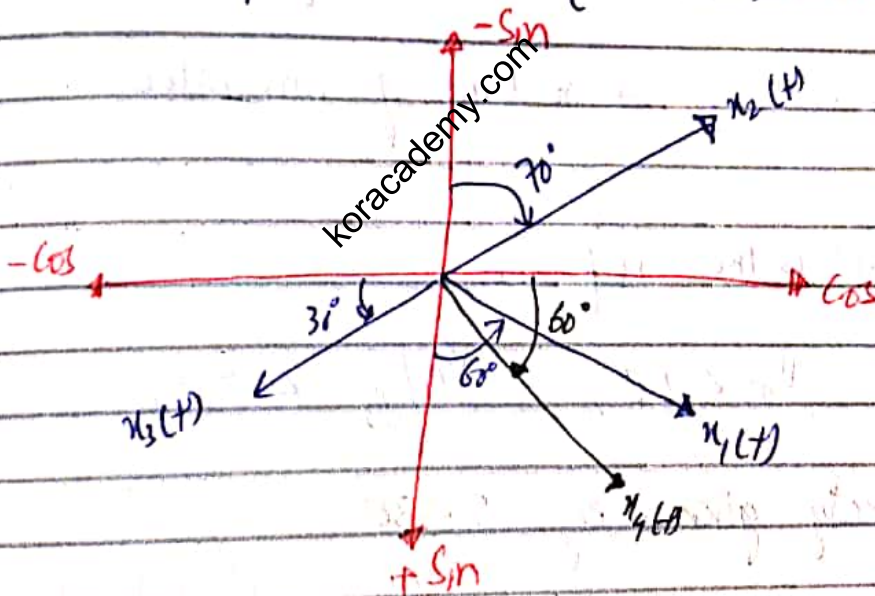 -Sin
x₂(t)
koracademy.com
70°
-Cos
Cos
30°
60°
60°
x₃(t)
x₁(t)
x₄(t)
+ Sin